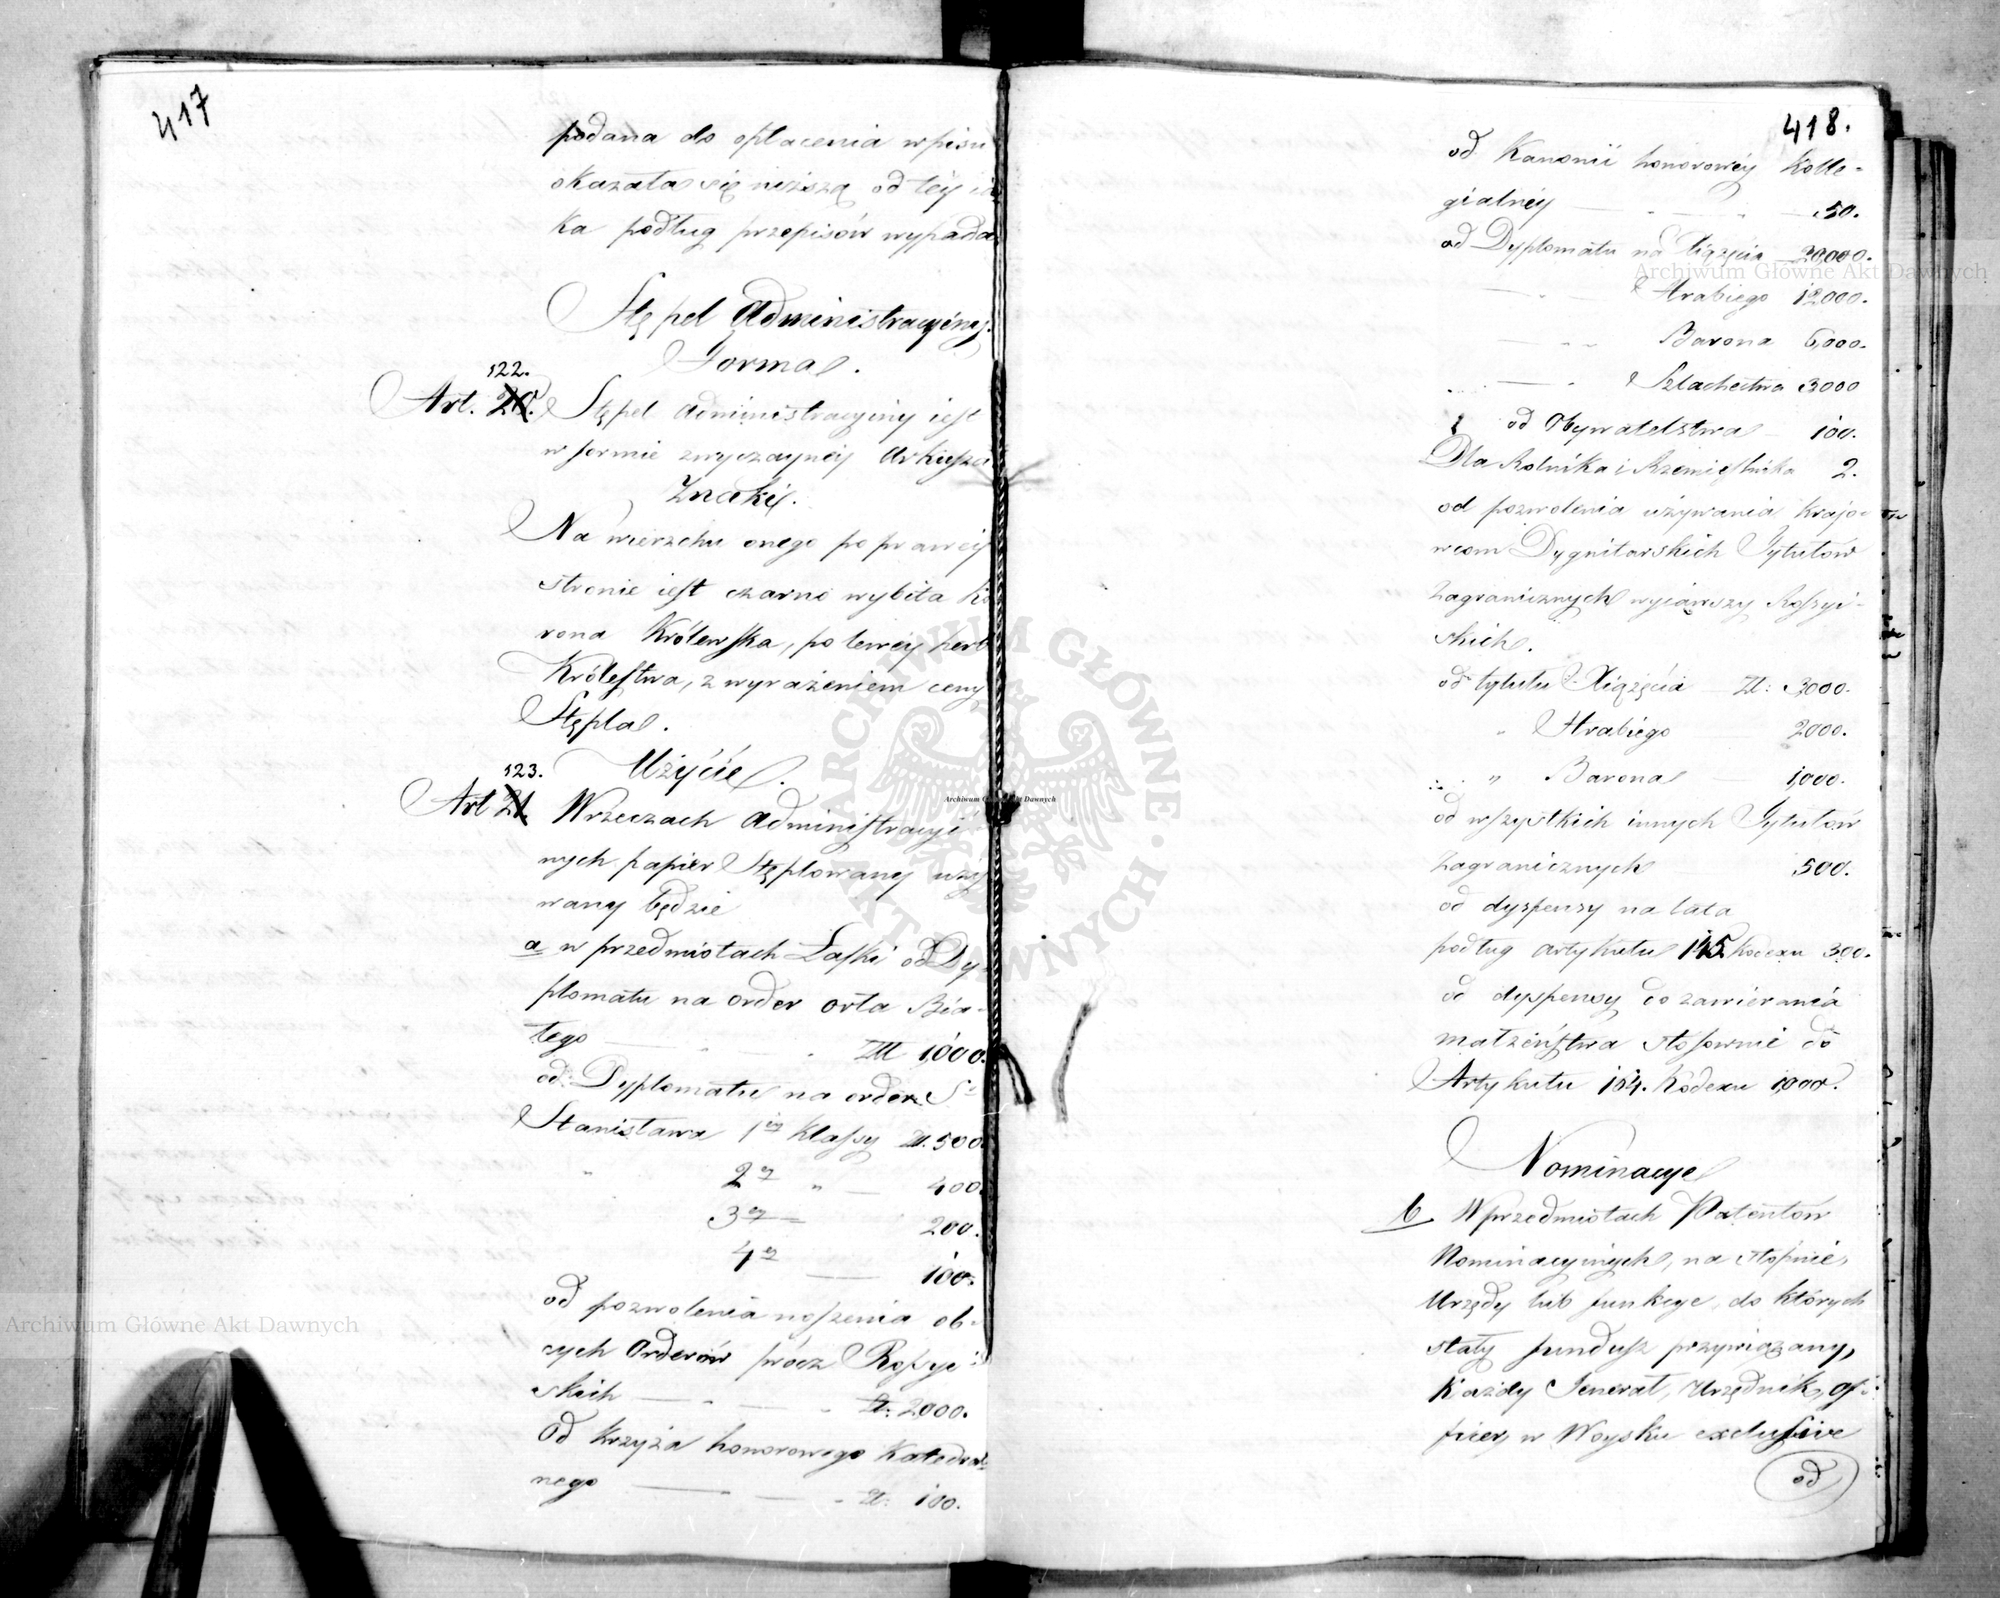 417
podana do opłacenia wpisu
okazała się niższą od téy ia
ka podług przepisów wypada
Stępel Administracyiny.
Forma.
122.
Art. 20. Stępel administracyiny iest
w formie zwyczaynéy Arkusza
Znaki.
Na wierzchu onego po prawéy
stronie iest czarno wybita Ko
rona Królewska, po lewéy herb
Królestwa, z wyrażeniem ceny
Stępla.
Użycie.
123.
Art 21. W rzeczach administracyi
nych papier Stęplowany uży
wany będzie
a w przedmiotach Łaski od Dy-
plomatu na order orła Bia-
łego Zł 1,000.
od Dyplomatu na order S.
Stanisława 1éy klassy Zł. 500.
" 2éy " 400.
3éy 200.
4éy 100.
od pozwolenia noszenia ob-
cych Orderów prócz Rossyi
skich Zł: 2000.
Od krzyża honorowego Katedral-
nego Zł: 100.
418.
od Kanonii honorowéy Kolle-
gialnéy 50.
od Dyplomatu na Xiążęcia 20,000.
Hrabiego 12,000.
Barona 6,000.
Szlachectwa 3000
od Obywatelstwa 100.
Dla Rolnika i Rzemieślnika 2.
od pozwolenia używania krajo-
wcom Dygnitarskich Tytułów
Zagranicznych wyiąwszy Rossyi-
skich.
od tytułu Xiążęcia Zł: 3000.
" Hrabiego 2000.
" Barona 1,000.
od wszystkich innych Tytułów
Zagranicznych 500.
od dyspensy na lata
podług artykułu 145 Kodexu 300.
od dyspensy do zawierania
małżeństwa stosownie do
Artykułu 164. Kodexu 1000.
Nominacye
b W przedmiotach Patentów
Nominacyinych, na stopnie,
Urzędy lub funkcye, do których
stały fundusz przywiązany,
Każdy Jenerał, Urzędnik, Of-
ficer, w Woysku exclusive
od
Archiwum Główne Akt Dawnych
Archiwum Główne Akt Dawnych
Archiwum Główne Akt Dawnych
ARCHIWUM GŁÓWNE AKT DAWNYCH